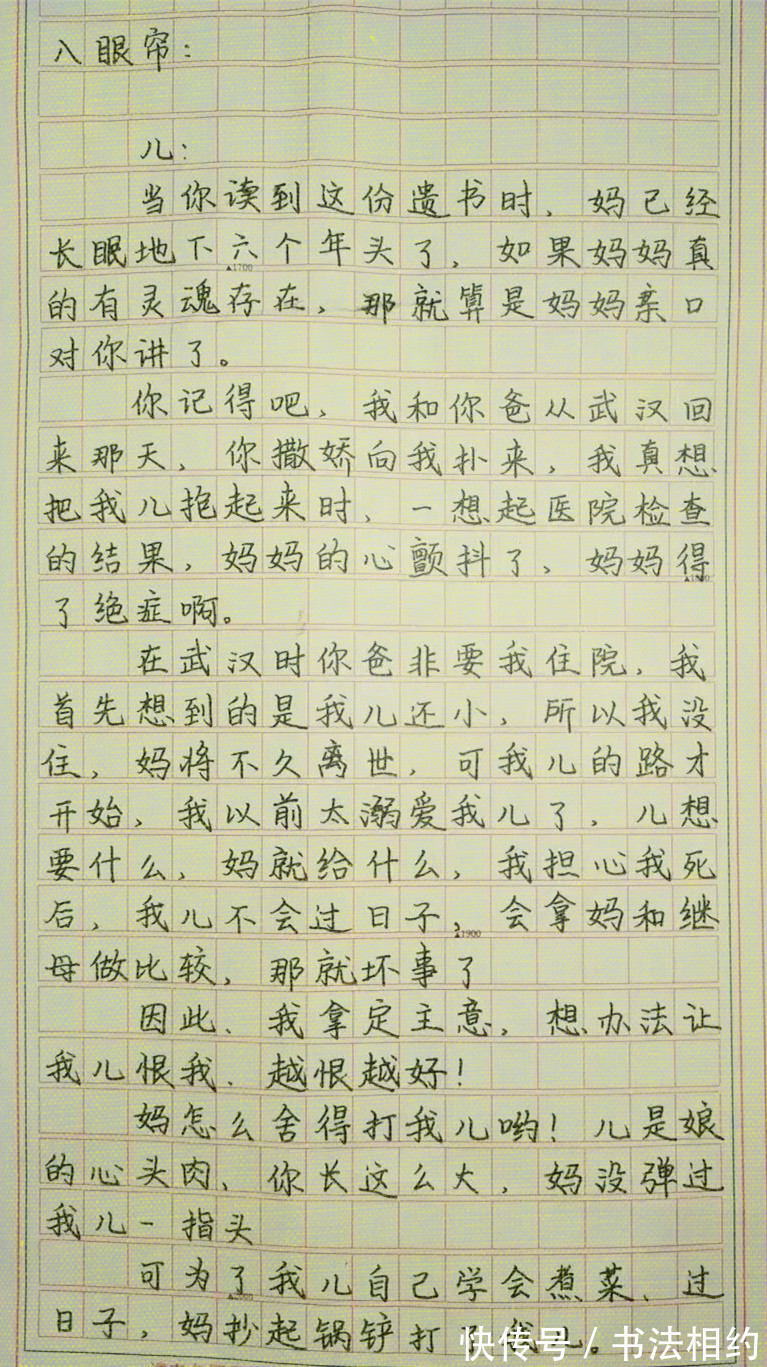 入眼帘：
儿：
当你读到这份遗书时、妈已经
长眠地下六个年头了，如果妈妈真
▲1700
的有灵魂存在，那就算是妈妈亲口
对你讲了。
你记得吧，我和你爸从武汉回
来那天，你撒娇向我扑来，我真想
把我儿抱起来时、一想起医院检查
的结果，妈妈的心颤抖了、妈妈得
▲1800
了绝症啊。
在武汉时你爸非要我住院，我
首先想到的是我儿还小，所以我没
住，妈将不久离世，可我儿的路才
开始，我以前太溺爱我儿了，儿想
要什么，妈就给什么，我担心我死
后，我儿不会过日子，会拿妈和继
▲1900
母做比较，那就坏事了
因此、我拿定主意，想办法让
我儿恨我、越恨越好！
妈怎么舍得打我儿哟！儿是娘
的心头肉、你长这么大，妈没弹过
我儿一指头
可为了我儿自己学会煮菜、过
日子，妈抄起锅铲打了我儿。
快传号 / 书法相约